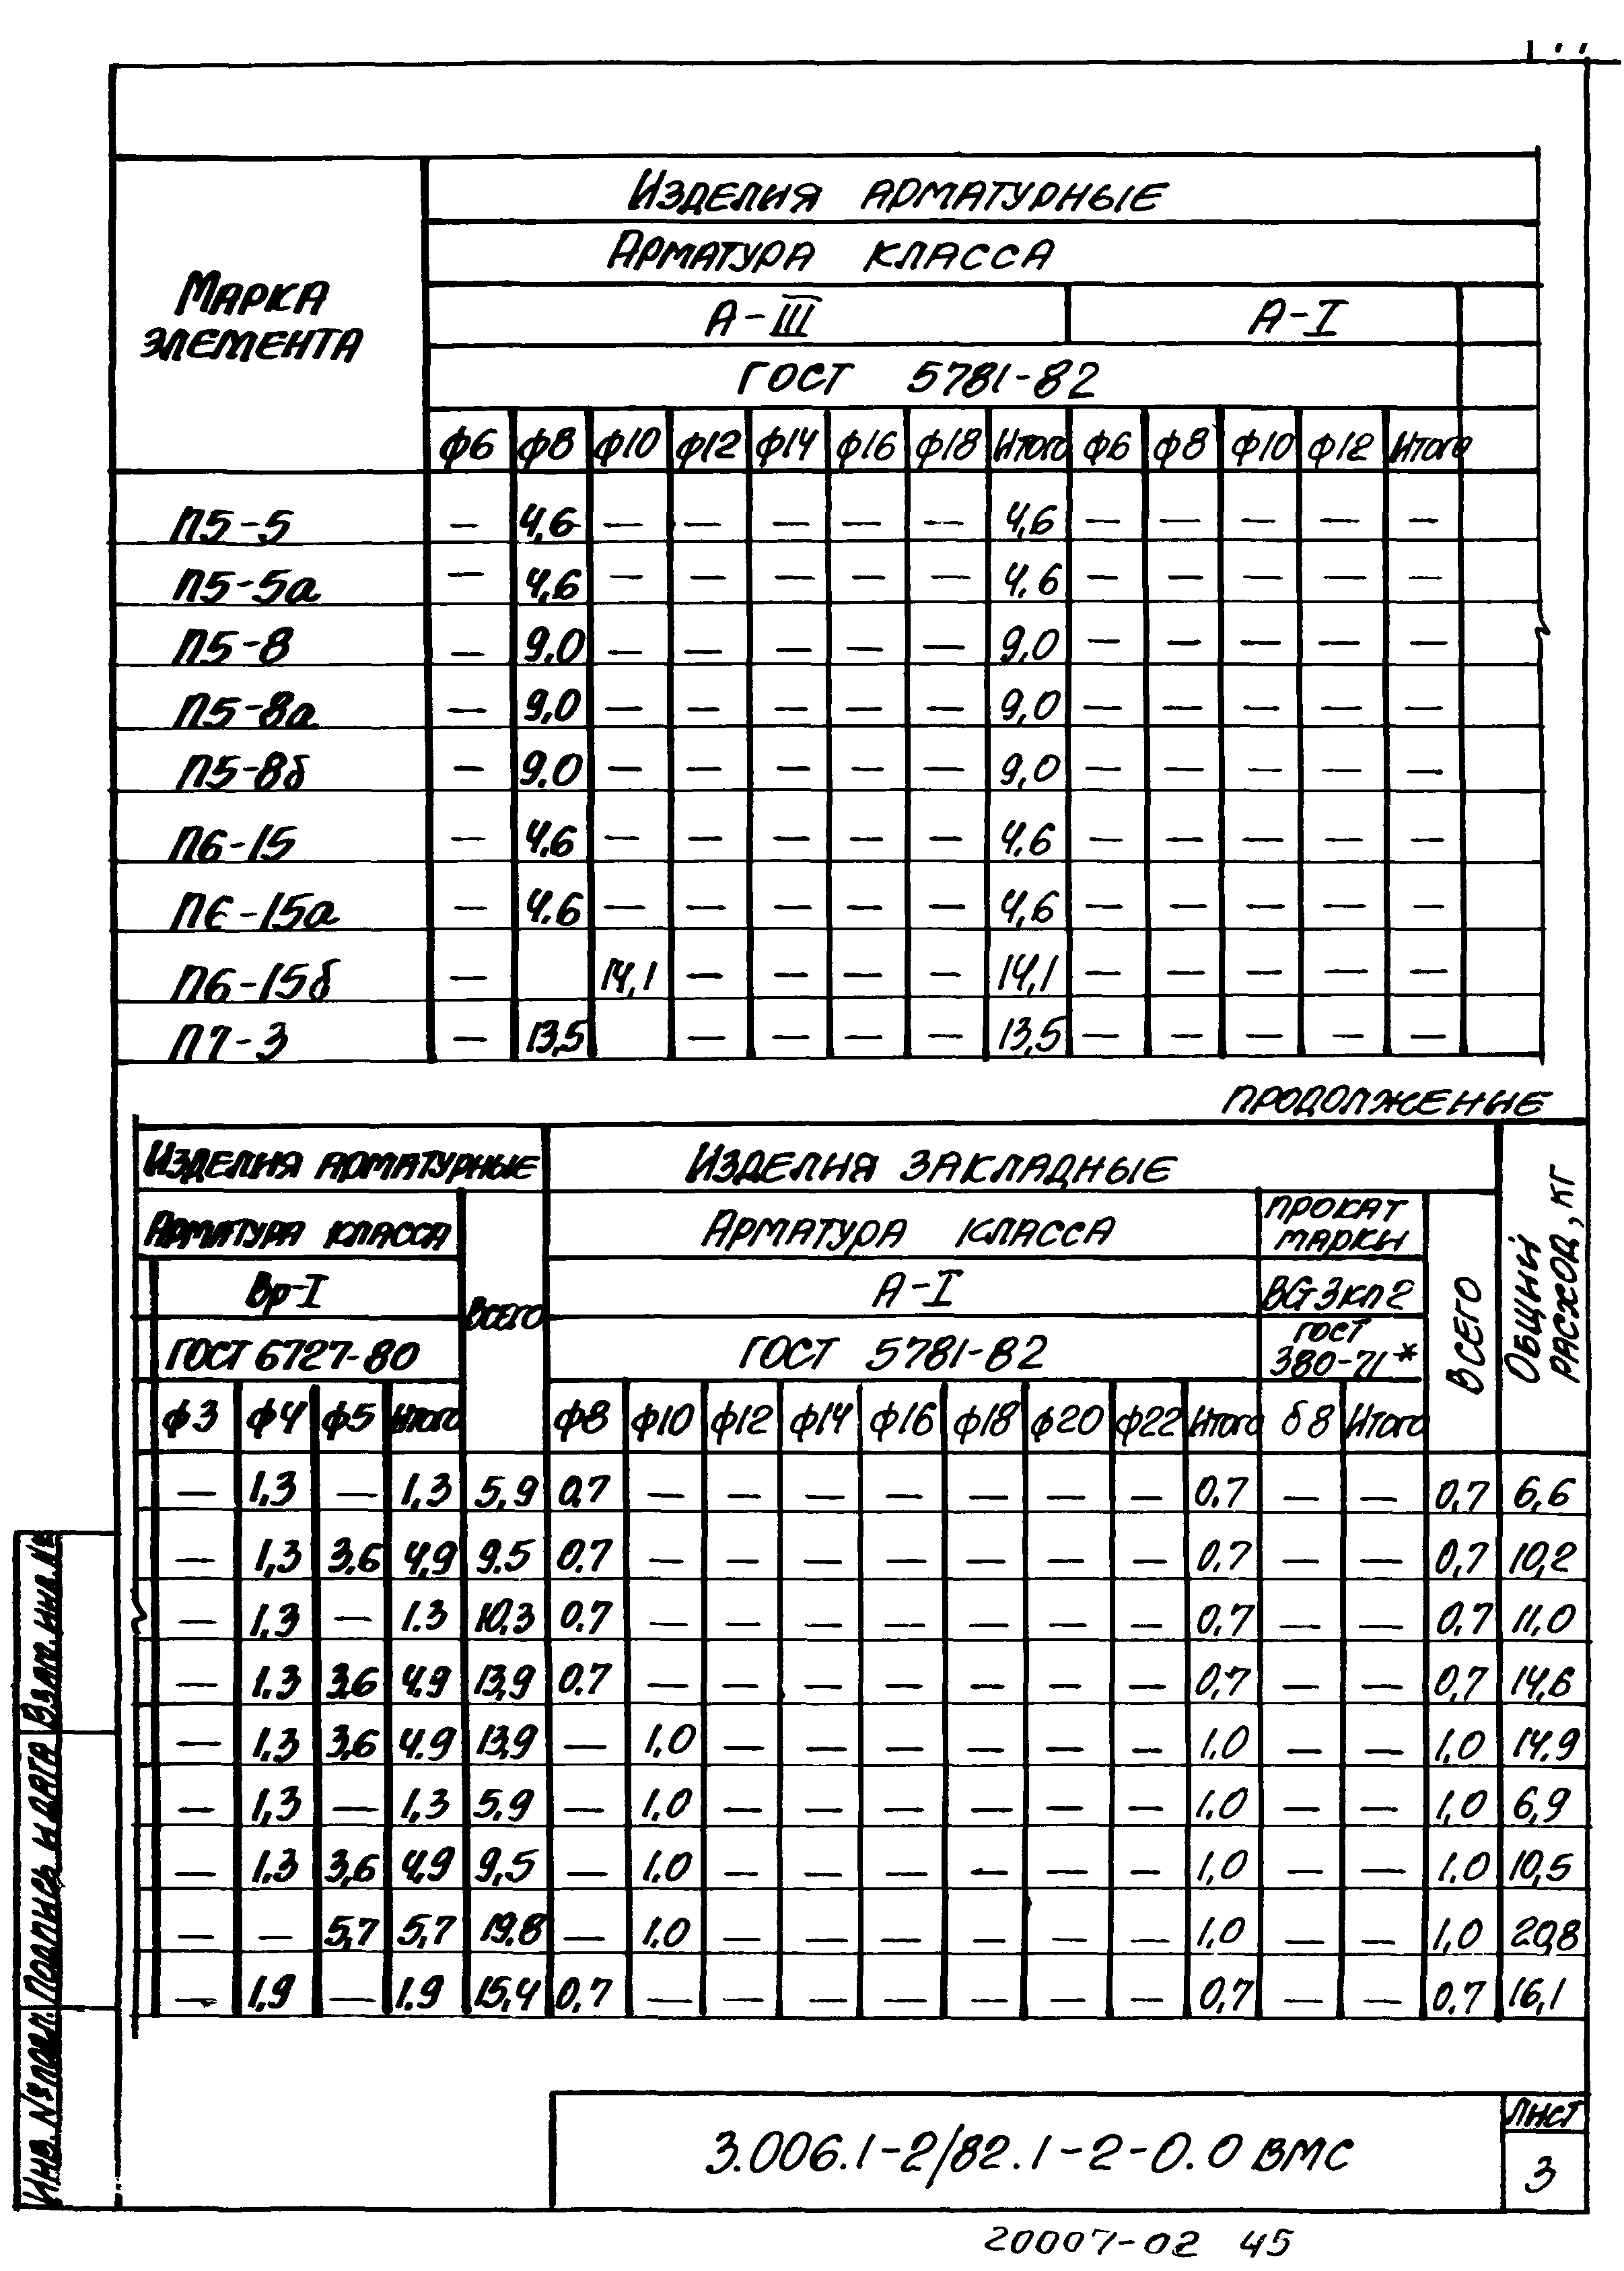 Марка элемента
Изделия арматурные
Арматура класса
А-III А-I
ГОСТ 5781-82
ф6 ф8 ф10 ф12 ф14 ф16 ф18 Итого ф6 ф8 ф10 ф12 Итого
П5-5 — 4,6 — — — — — 4,6 — — — — —
П5-5а — 4,6 — — — — — 4,6 — — — — —
П5-8 — 9,0 — — — — — 9,0 — — — — —
П5-8а — 9,0 — — — — — 9,0 — — — — —
П5-8б — 9.0 — — — — — 9,0 — — — — —
П6-15 — 4,6 — — — — — 4,6 — — — — —
П6-15а — 4.6 — — — — — 4,6 — — — — —
П6-15б — 14,1 — — — — 14,1 — — — — —
П7-3 — 13,5 — — — — 13,5 — — — — —
продолжение
Изделия арматурные Изделия закладные Общий расход, кг
Арматура класса Всего Арматура класса Прокат марки Всего
Вр-I А-I ВСт3кп2
ГОСТ 6727-80 ГОСТ 5781-82 ГОСТ 380-71*
ф3 ф4 ф5 Итого ф8 ф10 ф12 ф14 ф16 ф18 ф20 ф22 Итого б8 Итого
— 1,3 — 1,3 5,9 0,7 — — — — — — — 0,7 — — 0,7 6,6
— 1,3 3,6 4,9 9.5 0.7 — — — — — — — 0,7 — — 0,7 10,2
— 1,3 — 1.3 10,3 0.7 — — — — — — — 0,7 — — 0,7 11,0
— 1.3 3,6 4.9 13,9 0.7 — — — — — — — 0,7 — — 0,7 14,6
— 1.3 3,6 4.9 13,9 — 1,0 — — — — — — 1,0 — — 1,0 14,9
— 1,3 — 1,3 5,9 — 1,0 — — — — — — 1.0 — — 1,0 6,9
— 1.3 3,6 4,9 9,5 — 1.0 — — — — — — 1,0 — — 1.0 10,5
— — 5,7 5,7 19.8 — 1.0 — — — — — — 1,0 — — 1,0 20,8
— 1,9 — 1.9 15,4 0,7 — — — — — — — 0,7 — — 0,7 16,1
Инв. № подл. Подпись и дата Взам. инв. №
3.006.1-2/82.1-2-0.0 ВМС
Лист
3
20007-02 45